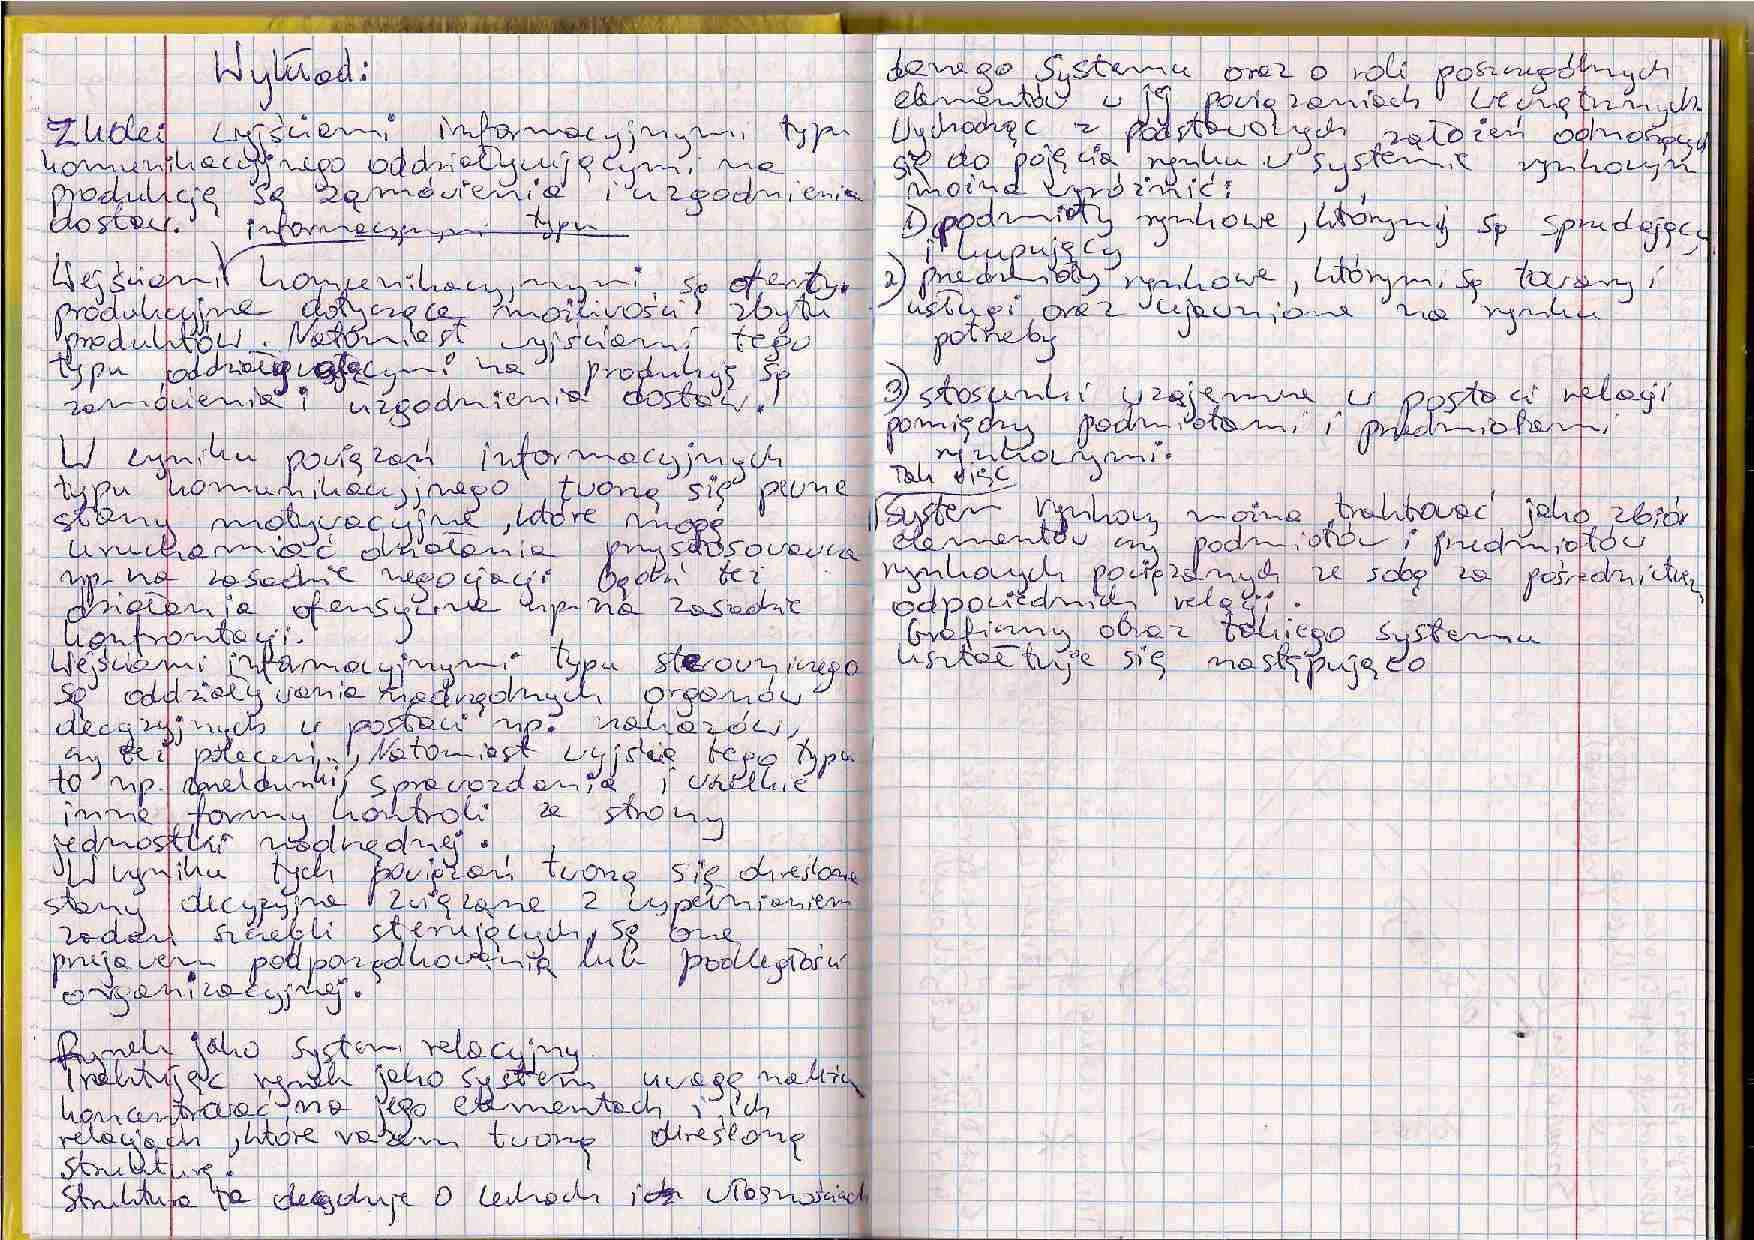 Wykład:
Z kolei wyjściami informacyjnymi typu
komunikacyjnego oddziaływującymi na
produkcję są zamówienia i uzgodnienia
dostaw. informacyjnymi typu
Wejściami komunikacyjnymi są oferty
produkcyjne dotyczące możliwości zbytu
produktów. Natomiast wyjściami tego
typu oddziaływującymi na produkcję są
zamówienia i uzgodnienia dostaw.
W wyniku powiązań informacyjnych
typu komunikacyjnego tworzą się pewne
stany motywacyjne, które mogą
uruchamiać działania przystosowawcze
np. na zasadzie negocjacji bądź też
działania ofensywne np. na zasadzie
konfrontacji.
Wejściami informacyjnymi typu sterowniczego
są oddziaływania nadrzędnych organów
decyzyjnych w postaci np. nakazów,
czy też poleceń. Natomiast wyjście tego typu
to np. meldunki, sprawozdania i wszelkie
inne formy kontroli ze strony
jednostki nadrzędnej.
W wyniku tych powiązań tworzą się określone
stany decyzyjne związane z wypełnianiem
zadań szczebli sterujących, są one
przejawem podporządkowania lub podległości
organizacyjnej.
Rynek jako system relacyjny
Traktując rynek jako system uwagę należy
koncentrować na jego elementach i ich
relacjach, które razem tworzą określoną
strukturę.
Struktura ta decyduje o cechach i własnościach
danego systemu oraz o roli poszczególnych
elementów w jej powiązaniach wewnętrznych.
Wychodząc z podstawowych założeń odnoszących
się do pojęcia rynku w systemie rynkowym
można wyróżnić:
1) podmioty rynkowe, którymi są sprzedający
i kupujący
2) przedmioty rynkowe, którymi są towary i
usługi oraz ujawnione na rynku
potrzeby
3) stosunki wzajemne w postaci relacji
pomiędzy podmiotami i przedmiotami
rynkowymi.
Tak więc
System rynkowy można traktować jako zbiór
elementów czy podmiotów i przedmiotów
rynkowych powiązanych ze sobą za pośrednictwem
odpowiednich relacji.
Graficzny obraz takiego systemu
kształtuje się następująco